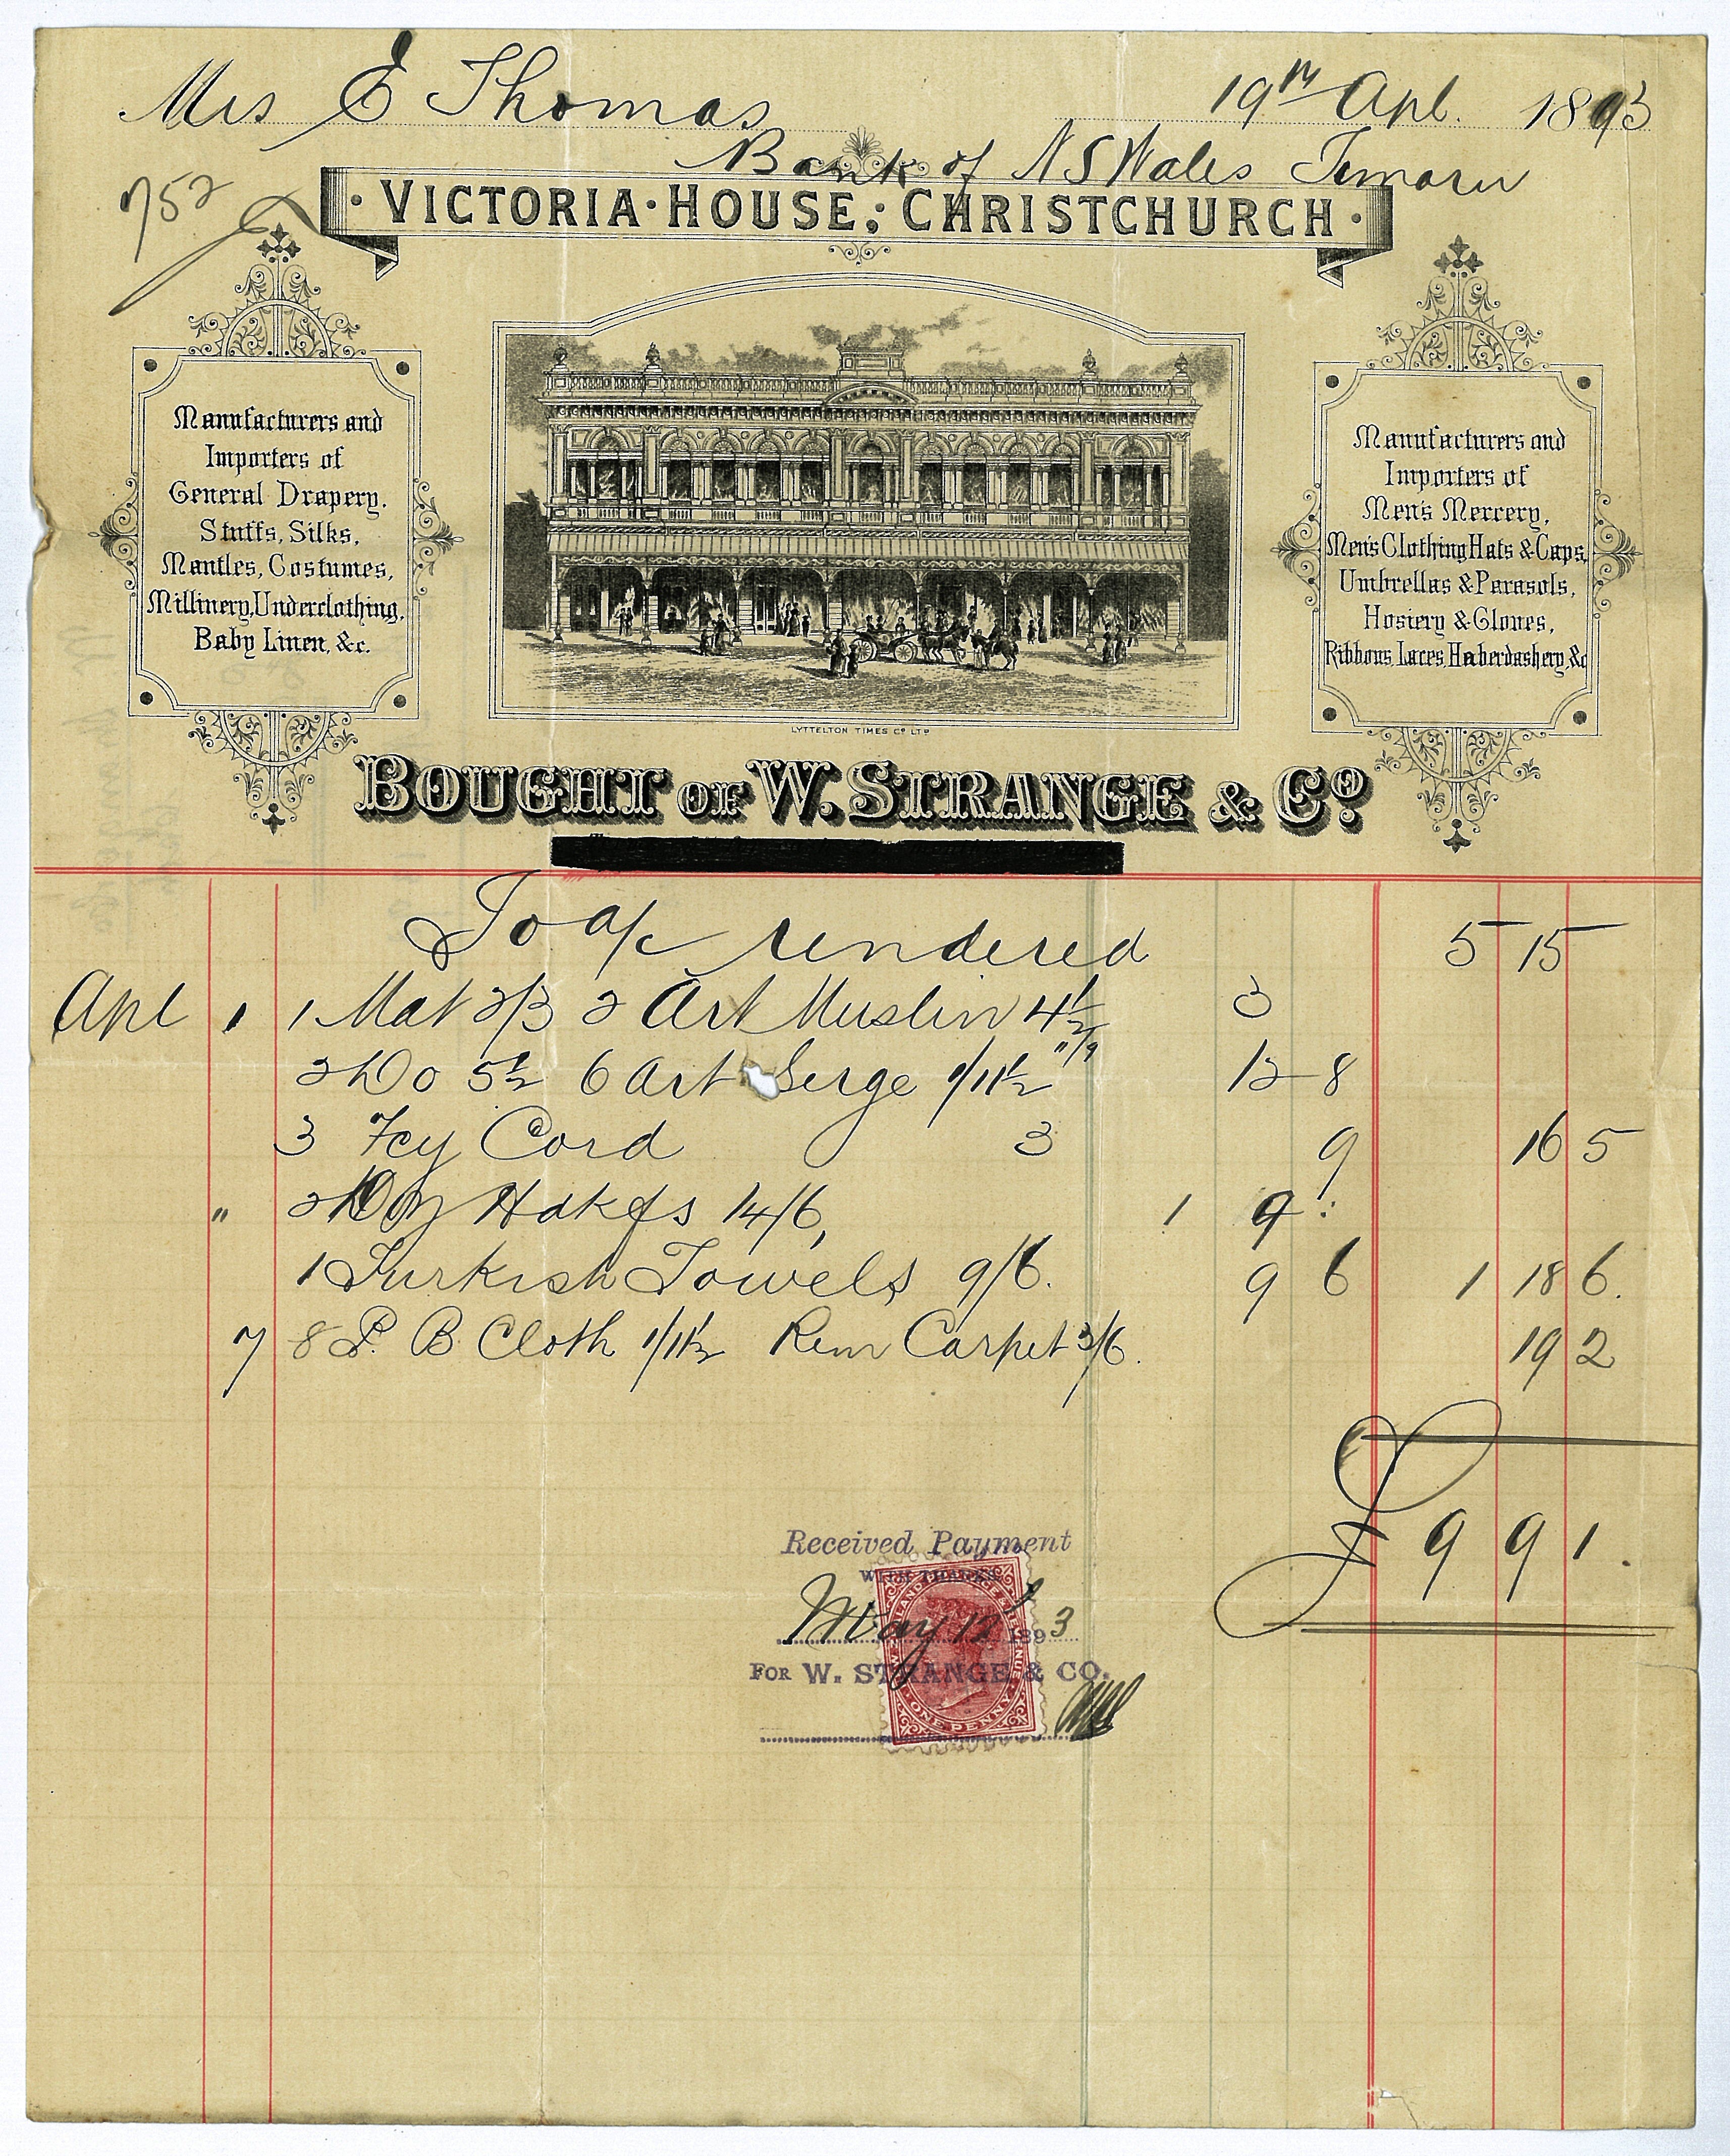 Mrs E Thomas 19th Apl. 1893
Bank of N S Wales Timaru
752
· VICTORIA · HOUSE: CHRISTCHURCH ·
Manufacturers and
Importers of
General Drapery.
Stuffs, Silks,
Mantles, Costumes,
Millinery, Underclothing,
Baby Linen, &c.
Manufacturers and
Importers of
Men's Mercery,
Men's Clothing Hats & Caps,
Umbrellas & Parasols,
Hosiery & Gloves,
Ribbons, Laces, Haberdashery, &c
LYTTELTON TIMES Co LTD
BOUGHT OF W. STRANGE & Co.
To a/c rendered 5 15
Apl 1 1 Mat 2/3 2 Art Muslin 4½ 3
2 Do 5½ 6 Art Serge 1/11½ 11/9 12 8
3 Fcy Cord 3 9 16 5
" 2 Doz Hdkfs 14/6, 1 9 :
1 Turkish Towels 9/6. 9 6 1 18 6.
7 8 P. B Cloth 1/11½ Rem Carpet 3/6. 19 2
£ 9 9 1.
Received Payment
WITH THANKS
May 12 1893
FOR W. STRANGE & CO.
NEW ZEALAND POSTAGE & REVENUE
ONE PENNY